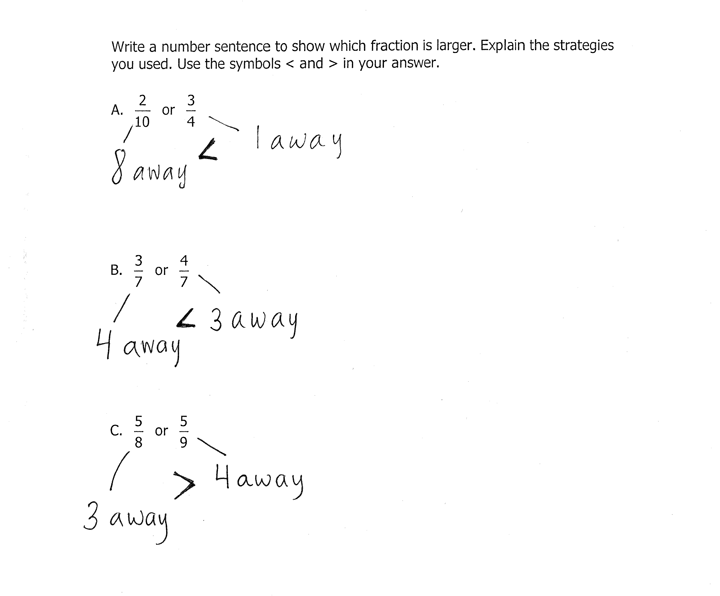 Write a number sentence to show which fraction is larger. Explain the strategies
you used. Use the symbols < and > in your answer.
A. 2/10 or 3/4
< 1 away
8 away
B. 3/7 or 4/7
< 3 away
4 away
C. 5/8 or 5/9
> 4 away
3 away